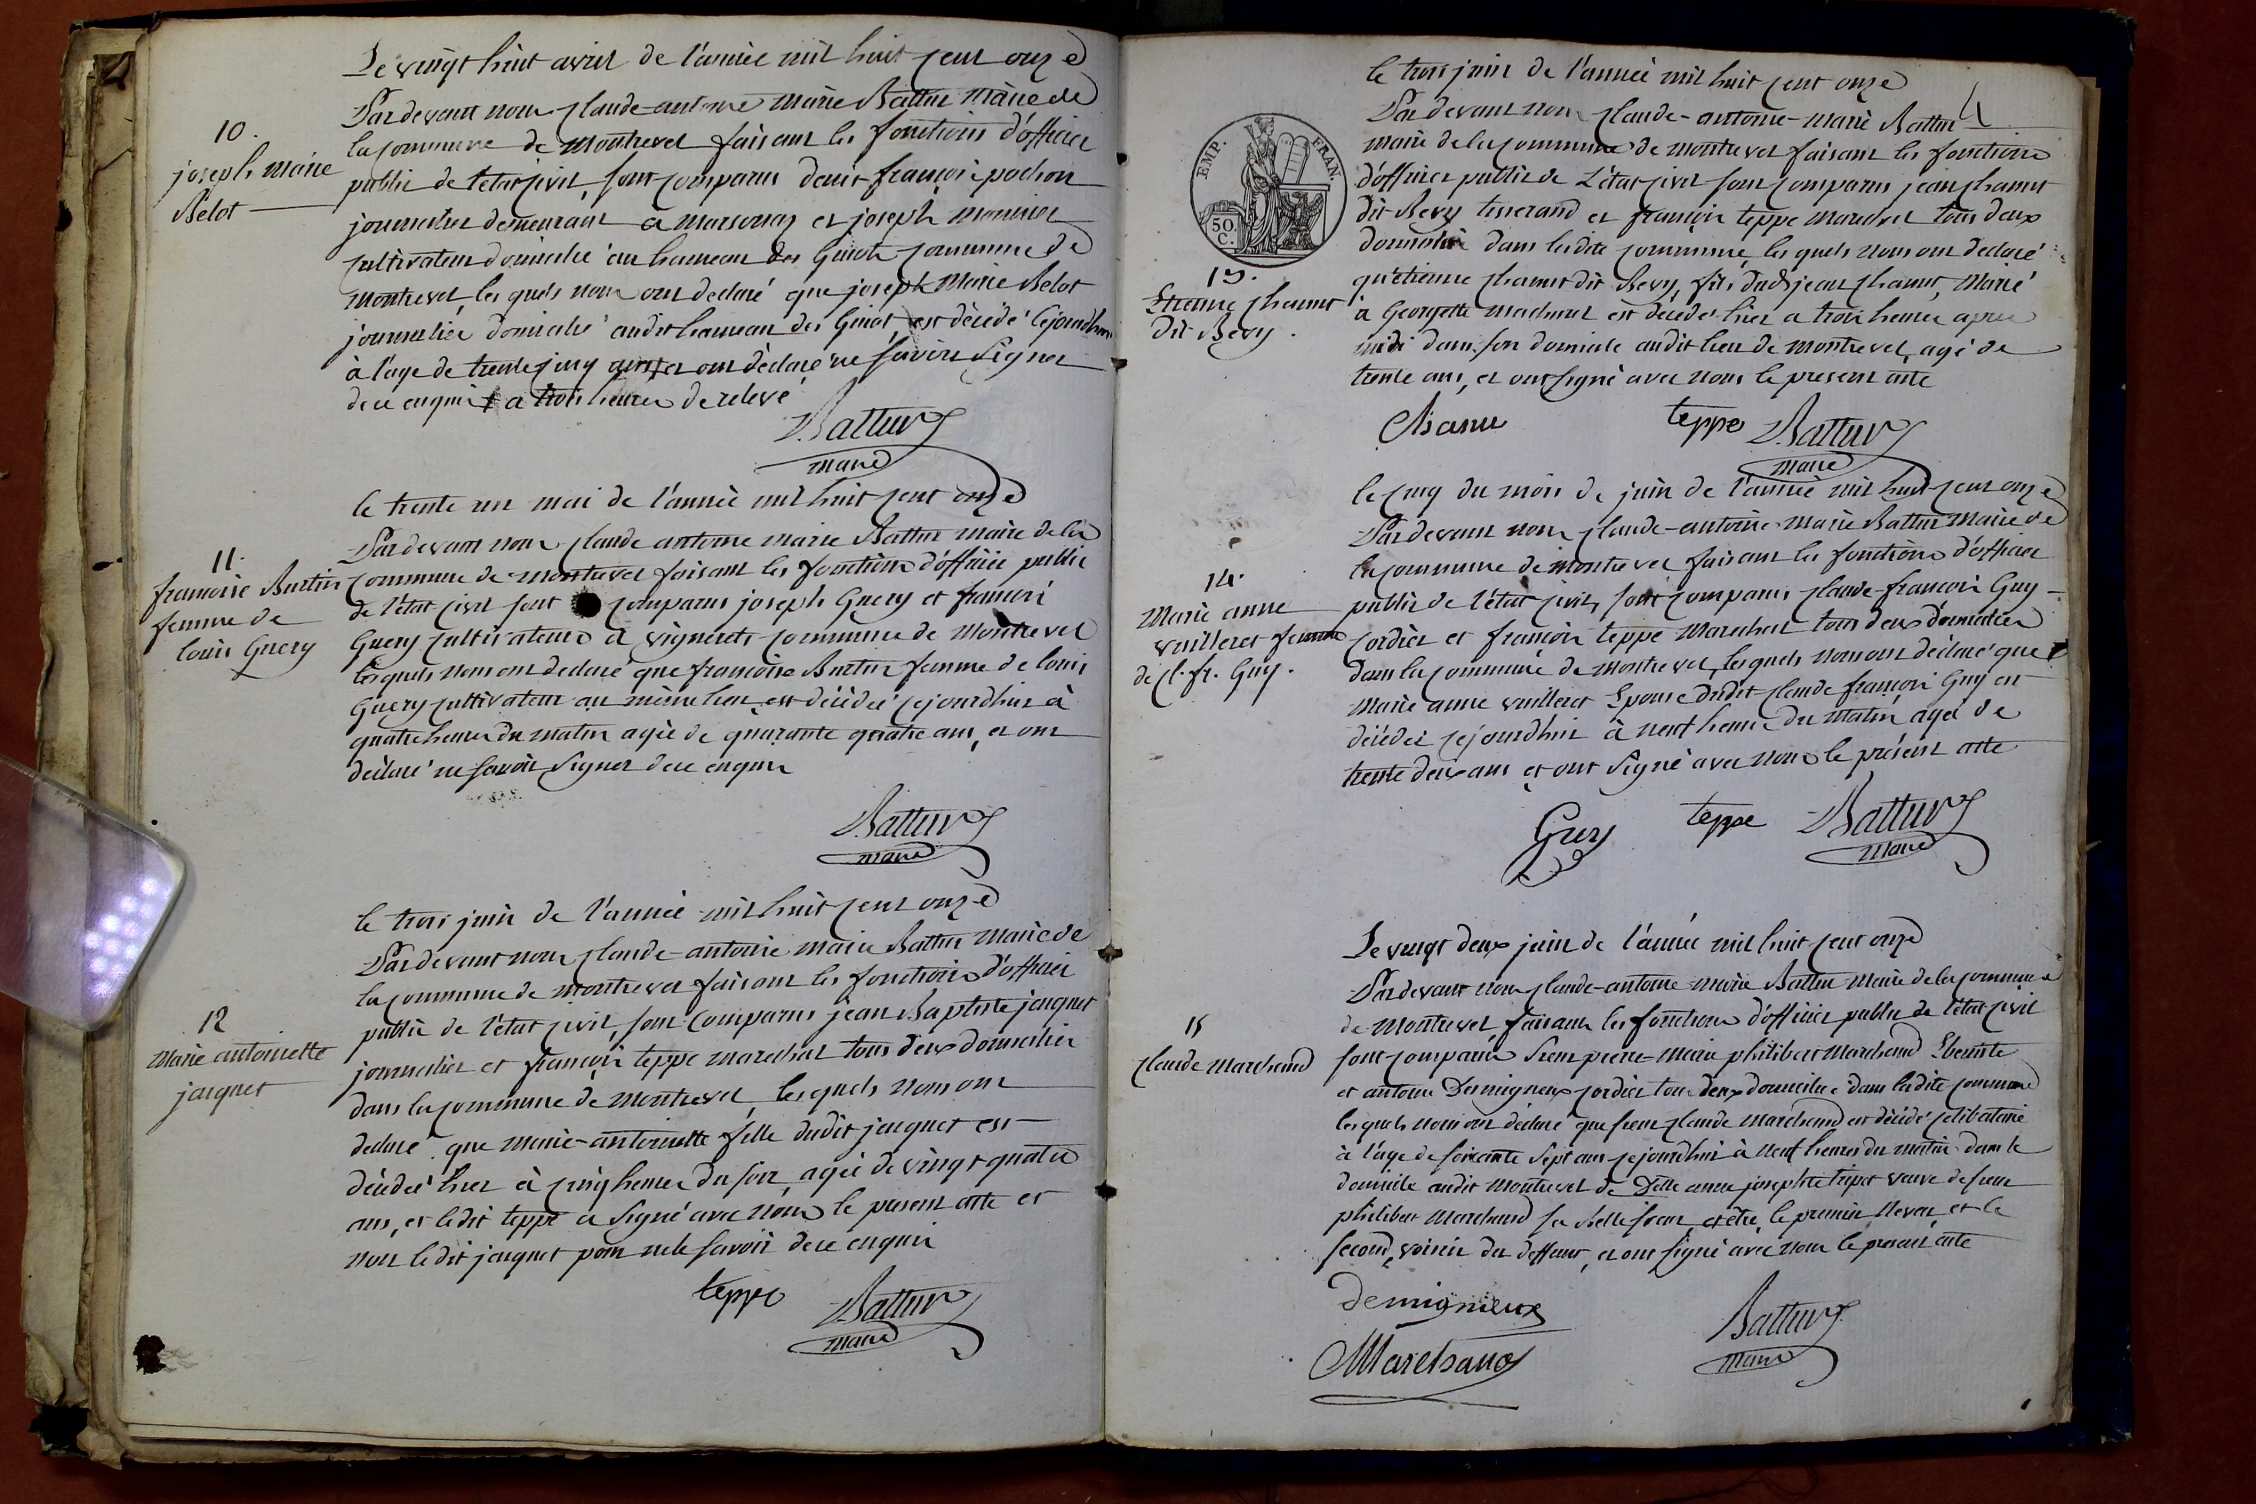 Le vingt huit avril de l'année mil huit cent onze
Pardevant nous claude-antoine Marie Battur Maire de
la commune de Montrevel faisant les fonctions d'officier
10.
joseph Marie
Belot
public de l'état civil, sont comparus denis françois pochon
journalier demeurant a marsonnay et joseph monnier
cultivateur domicilié au hameau des Guiot commune de
Montrevel, les quels nous ont declaré que joseph Marie Belot
journalier domicilié audit hameau des Guiot, est décédé cejourdhui
à l'age de trente cinq ans et ont déclaré ne savoir signer
de ce enquis a trois heures de relevé
Battur
maire
le trente un mai de l'année mil huit cent onze
Pardevant nous claude antoine marie Battur maire de la
11.
francoise Burtin
femme de
louis Guery
commune de montrevel faisant les fonctions d'officier public
de l'état civil sont comparus joseph Guery et francois
Guery cultivateurs a vignerets commune de Montrevel
lesquels nous ont declaré que françoise Burtin femme de louis
Guery cultivateur au même lieu, est décédée cejourdhui à
quatre heures du matin agée de quarante quatre ans, et ont
déclaré ne savoir signer de ce enquis
Battur
maire
le trois juin de l'année mil huit cent onze
Pardevant nous claude-antoine marie Battur Maire de
la commune de Montrevel faisant les fonctions d'officier
12
Marie antoinette
jacquet
public de l'état civil, sont comparus jean Baptiste jacquet
journalier et françois teppe marechal tous deux domiciliés
dans la commune de Montrevel, les quels nous ont
declaré que marie-antoinette fille dudit jacquet est
décédée hier à cinq heures du soir, agée de vingt quatre
ans, et ledit teppe a signé avec nous le present acte et
non ledit jacquet pour ne le savoir de ce enquis
teppe
Battur
maire
le trois juin de l'année mil huit cent onze
Pardevant nous claude-antoine-marie Battur
maire de la commune de montrevel faisant les fonctions
EMP. FRAN.
50.
C.
13.
Etienne chanut
dit Bevy.
d'officier public de l'état civil sont comparus jean chanut
dit Bevy tisserand et françois teppe marechal tous deux
domiciliés dans ladite commune, les quels nous ont declaré
qu'etienne chanut dit Bevy, fils dudt jean chanut, Marié
à Georgette marchand est décédé hier a trois heures après
midi dans son domicile audit lieu de montrevel, agé de
trente ans, et ont signé avec nous le present acte
Chanu
teppe
Battur
maire
le cinq du mois de juin de l'année mil huit cent onze
Pardevant nous claude-antoine-Marie Battur Maire de
la commune de montrevel faisant les fonctions d'officier
14.
Marie anne
vuilleret femme
de cl. fr. Guy.
public de l'état civil, sont comparus claude-françois Guy
cordier et françois teppe Marechal tous deux domiciliés
dans la commune de Montrevel, lesquels nous ont déclaré que
Marie anne vuilleret Epouse dudit claude françois Guy est
décédée cejourd'hui à neuf heures du matin agée de
trente deux ans et ont signé avec nous le présent acte
Guy
teppe
Battur
Maire
Le vingt deux juin de l'année mil huit cent onze
Pardevant nous claude-antoine-marie Battur Maire de la commune
de Montrevel, faisant les fonctions d'officier public de l'état civil
15
claude Marchand
sont comparus sieur pierre-Marie philibert Marchand Ebeniste
et antoine Desmigneux cordier tous deux domiciliés dans ladite commune
lesquels nous ont déclaré que sieur claude Marchand est décédé celibataire
à l'age de soixante sept ans cejourdhui à neuf heures du matin dans le
domicile audit Montrevel de Delle anne josephte tripet veuve de sieur
philibert Marchand sa Belle soeur, et être, le premier Neveu, et le
second, voisin du deffunt, et ont signé avec nous le present acte
Demigneux
Marchand
Battur
Maire